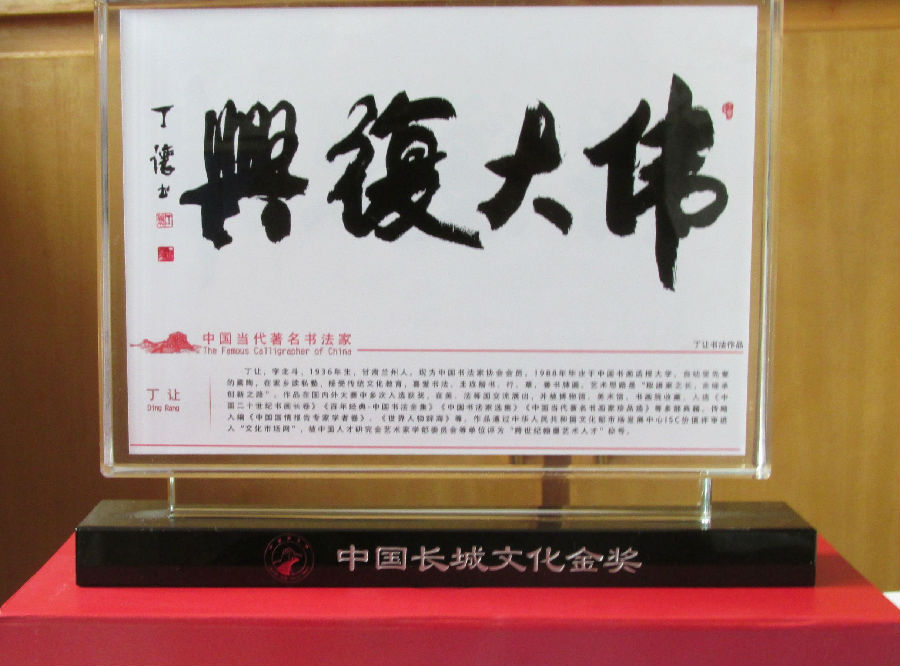 偉大復興
丁讓书
中国当代著名书法家
The Famous Calligrapher of China
丁让书法作品
丁让
Ding Rang
丁让，字北斗，1936年生，甘肃兰州人，现为中国书法家协会会员，1988年毕业于中国书画函授大学，自幼受先辈
的熏陶，在家乡读私塾，接受传统文化教育，喜爱书法，主攻楷书、行、草，善书牌匾，艺术思路是“取诸家之长，走继承
创新之路”，作品在国内外大赛中多次入选获奖，在美、法等国交流展出，并被博物馆、美术馆、书画院收藏，入选《中
国二十世纪书画长卷》《百年经典·中国书法全集》《中国书法家选集》《中国当代著名书画家珍品选》等多部典籍，传略
入编《中国国情报告专家学者卷》、《世界人物辞海》等，作品通过中华人民共和国文化部市场发展中心ISC价值评审进
入“文化市场网”，被中国人才研究会艺术家学部委员会等单位评为“跨世纪翰墨艺术人才”称号。
中国长城文化金奖